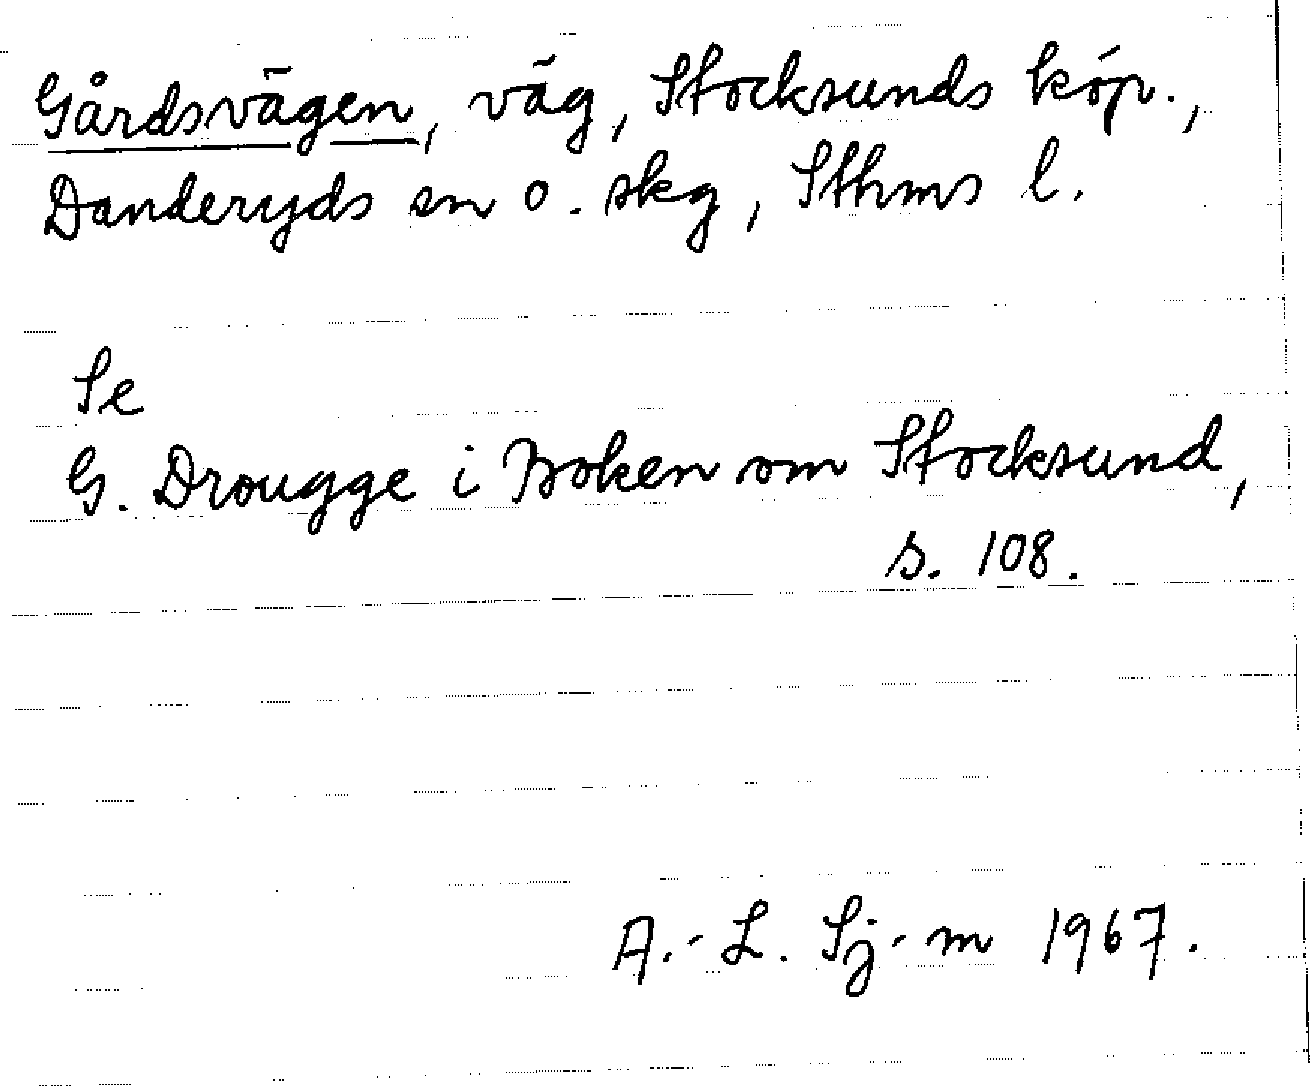 Gårdsvägen, väg, Stocksunds köp.,
Danderyds sn o. skg, Sthms l.
Se
G. Drougge i Boken om Stocksund,
s. 108.
A.-L. Sj-m 1967.